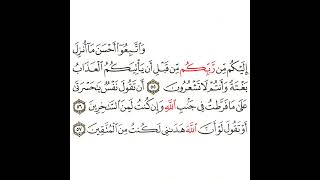 وَٱتَّبِعُوٓا۟ أَحْسَنَ مَآ أُنزِلَ
إِلَيْكُم مِّن رَّبِّكُم مِّن قَبْلِ أَن يَأْتِيَكُمُ ٱلْعَذَابُ
بَغْتَةً وَأَنتُمْ لَا تَشْعُرُونَ ٥٥ أَن تَقُولَ نَفْسٌ يَٰحَسْرَتَىٰ
عَلَىٰ مَا فَرَّطتُ فِى جَنۢبِ ٱللَّهِ وَإِن كُنتُ لَمِنَ ٱلسَّٰخِرِينَ ٥٦
أَوْ تَقُولَ لَوْ أَنَّ ٱللَّهَ هَدَىٰنِى لَكُنتُ مِنَ ٱلْمُتَّقِينَ ٥٧